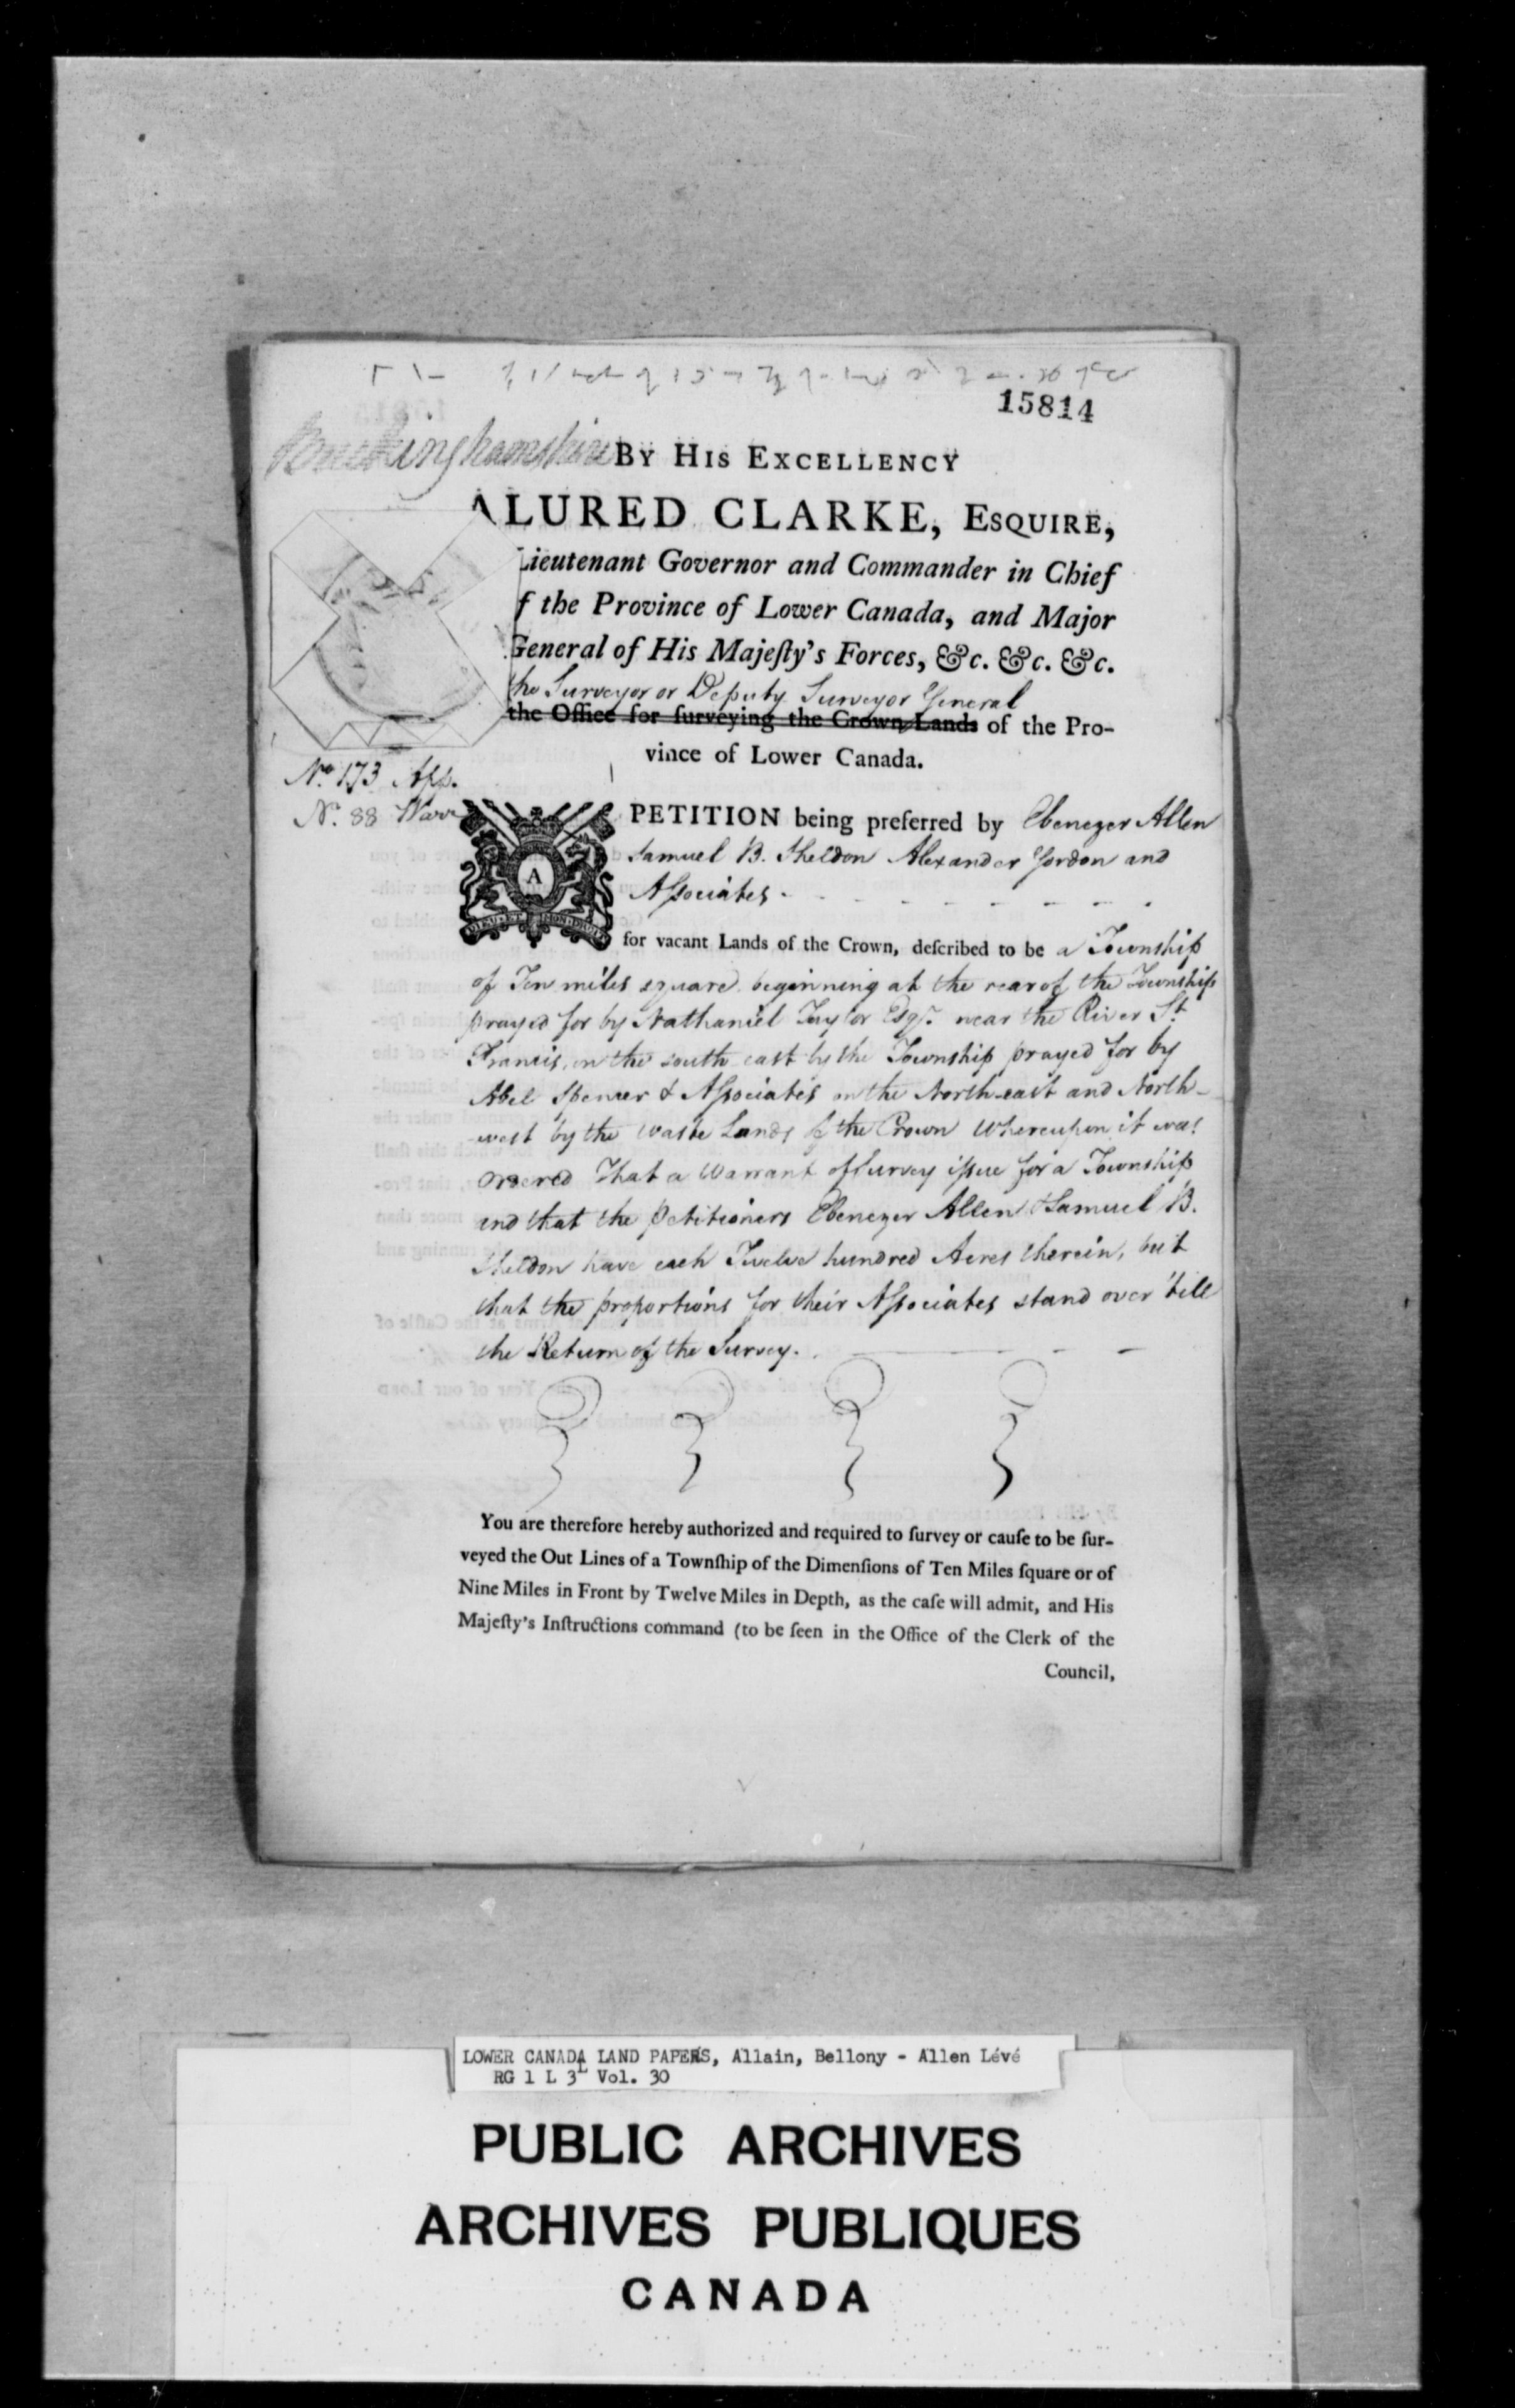 15814
Buckinghamshire
BY HIS EXCELLENCY
ALURED CLARKE, ESQUIRE,
Lieutenant Governor and Commander in Chief
f the Province of Lower Canada, and Major
General of His Majeſty's Forces, &c. &c. &c.
the Surveyor or Deputy Surveyor General
the Office for ſurveying the Crown Lands of the Pro-
vince of Lower Canada.
No. 173 App.
No. 88 Warr
A PETITION being preferred by Ebenezer Allen
Samuel B. Sheldon Alexander Gordon and
Aſsociates
DIEU ET MON DROIT
for vacant Lands of the Crown, deſcribed to be a Township
of Ten miles square beginning at the rear of the Township
prayed for by Nathaniel Taylor Esqr. near the River St.
Francis, on the south east by the Township prayed for by
Abel Spencer & Aſsociates on the North-east and North-
west by the Waste Lands of the Crown Whereupon it was
ordered That a Warrant of Survey iſsue for a Township
and that the Petitioners Ebenezer Allen & Samuel B.
Sheldon have each Twelve hundred Acres therein, but
that the proportions for their Aſsociates stand over 'till
the Return of the Survey.
You are therefore hereby authorized and required to ſurvey or cauſe to be ſur-
veyed the Out Lines of a Townſhip of the Dimenſions of Ten Miles ſquare or of
Nine Miles in Front by Twelve Miles in Depth, as the caſe will admit, and His
Majeſty's Inſtructions command (to be ſeen in the Office of the Clerk of the
Council,
LOWER CANADA LAND PAPERS, Allain, Bellony - Allen Lévé
RG 1 L 3L Vol. 30
PUBLIC ARCHIVES
ARCHIVES PUBLIQUES
CANADA